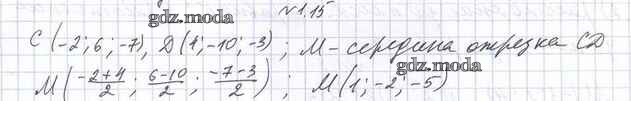 №1.15
gdz.moda
C (-2; 6; -7), D (4; -10; -3) ; M - середина отрезка CD
gdz.moda
M ( \frac{-2+4}{2} ; \frac{6-10}{2} ; \frac{-7-3}{2} ) ; M (1; -2; -5)